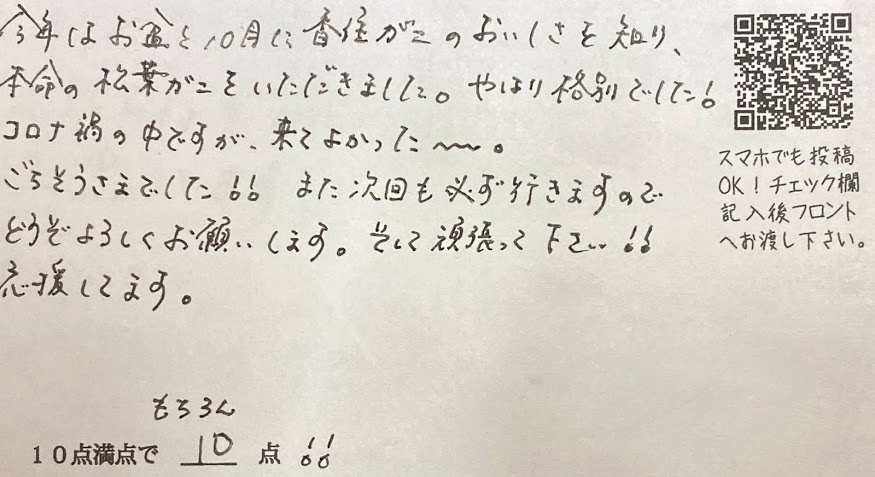 今年はお盆と10月に香住がにのおいしさを知り、
本命の松葉がにをいただきました。やはり格別でした!
コロナ禍の中ですが、来てよかった〜〜。
ごちそうさまでした!! また次回も必ず行きますので
どうぞよろしくお願いします。そして頑張って下さい!!
応援してます。
スマホでも投稿
OK!チェック欄
記入後フロント
へお渡し下さい。
もちろん
10点満点で 10 点 !!